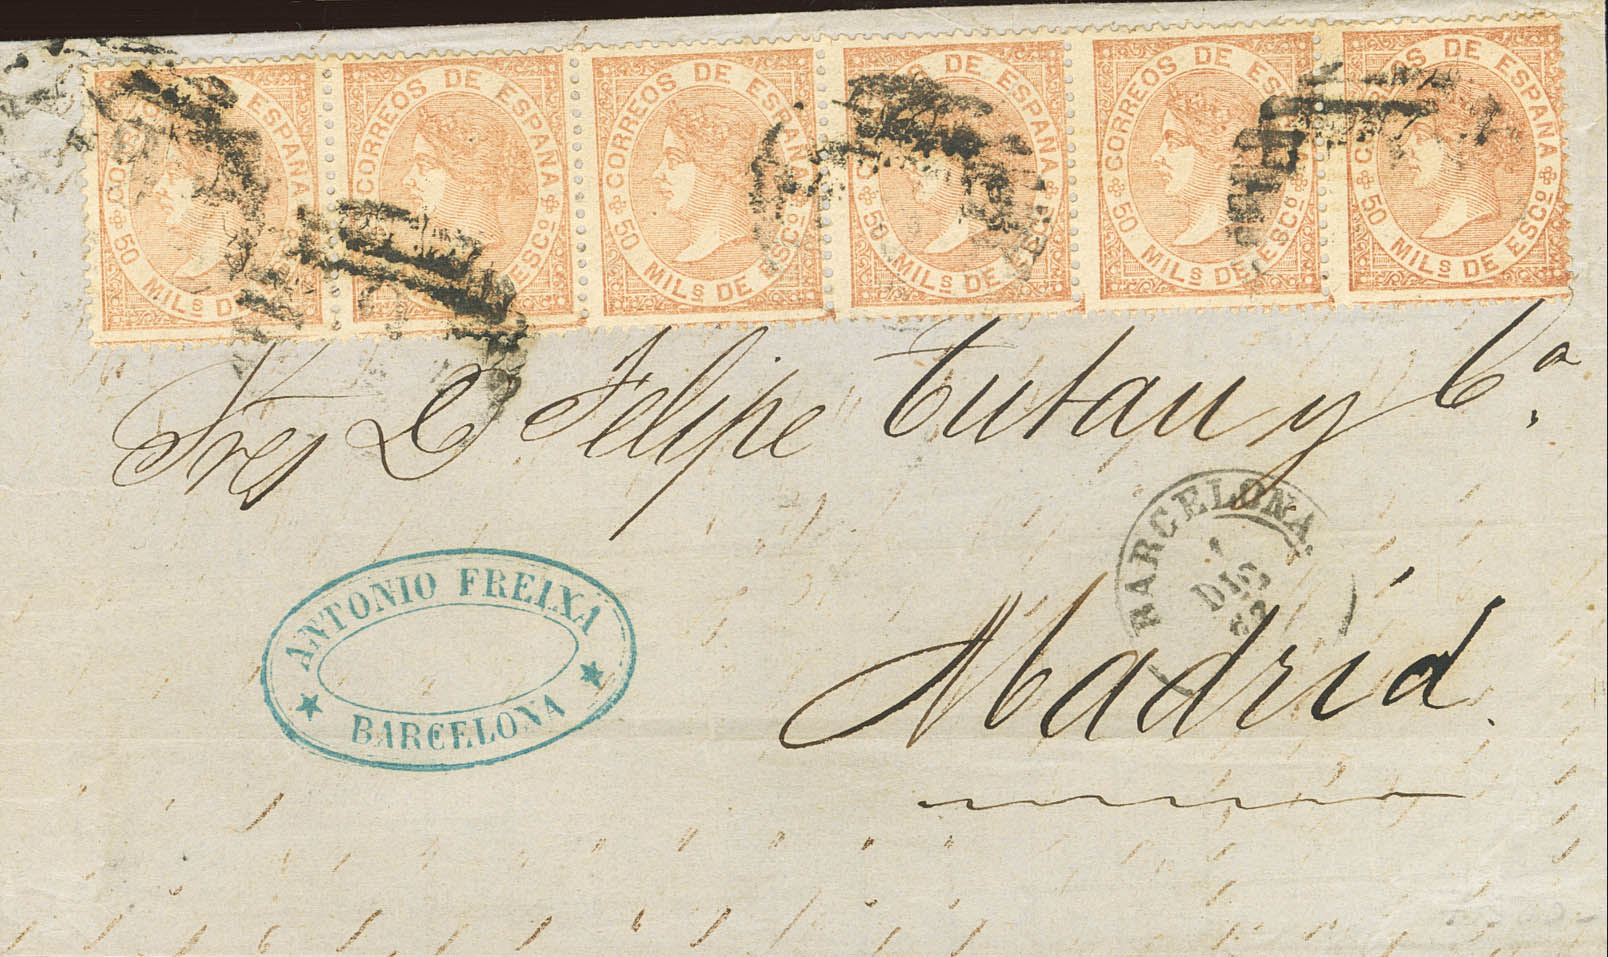 CORREOS DE ESPAÑA
50 MILS DE ESCO
CORREOS DE ESPAÑA
50 MILS DE ESCO
CORREOS DE ESPAÑA
50 MILS DE ESCO
CORREOS DE ESPAÑA
50 MILS DE ESCO
CORREOS DE ESPAÑA
50 MILS DE ESCO
CORREOS DE ESPAÑA
50 MILS DE ESCO
Sres D Felipe Tutau y Ca.
BARCELONA.
1
DIC
ANTONIO FREIXA
BARCELONA
Madrid.